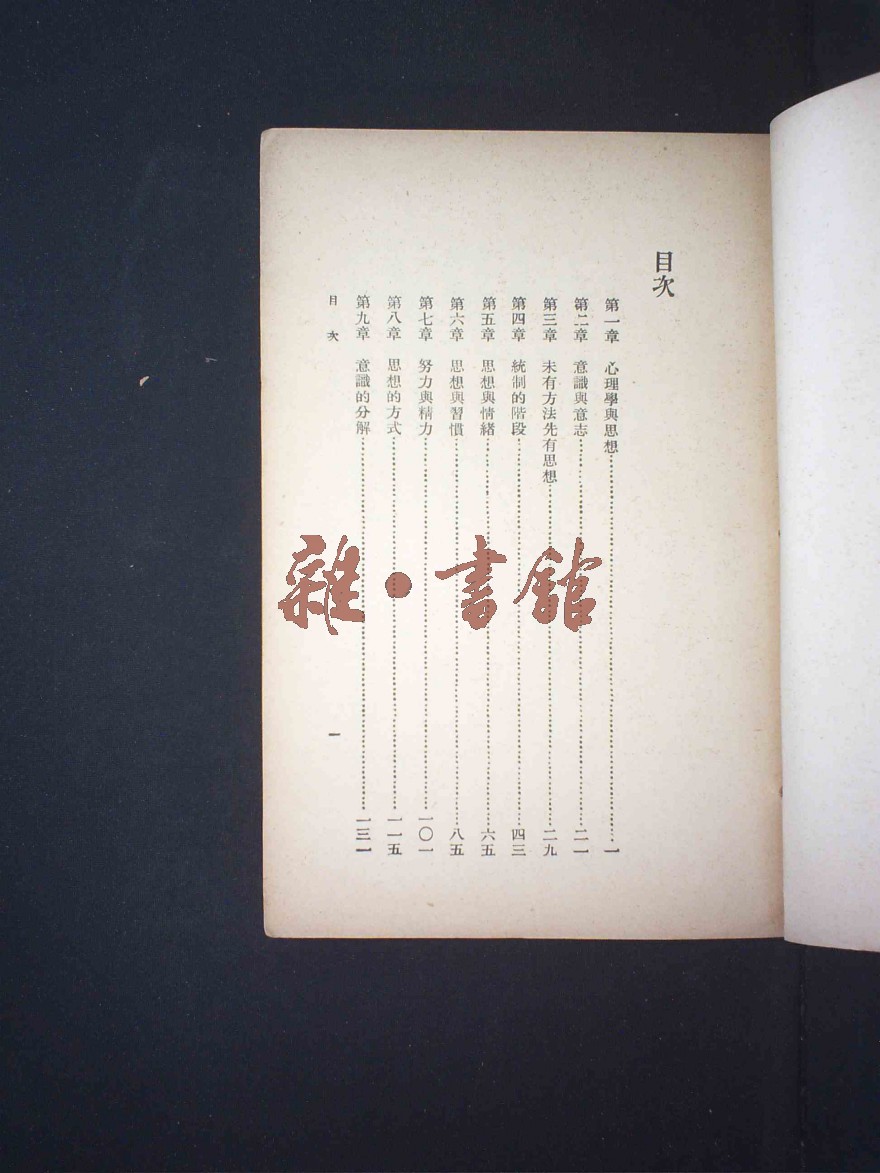 目次
第一章 心理學與思想……一
第二章 意識與意志……二一
第三章 未有方法先有思想……二九
第四章 統制的階段……四三
第五章 思想與情緒……六五
第六章 思想與習慣……八五
第七章 努力與精力……一〇一
第八章 思想的方式……一一五
第九章 意識的分解……一三一
目次 一
雜·書館